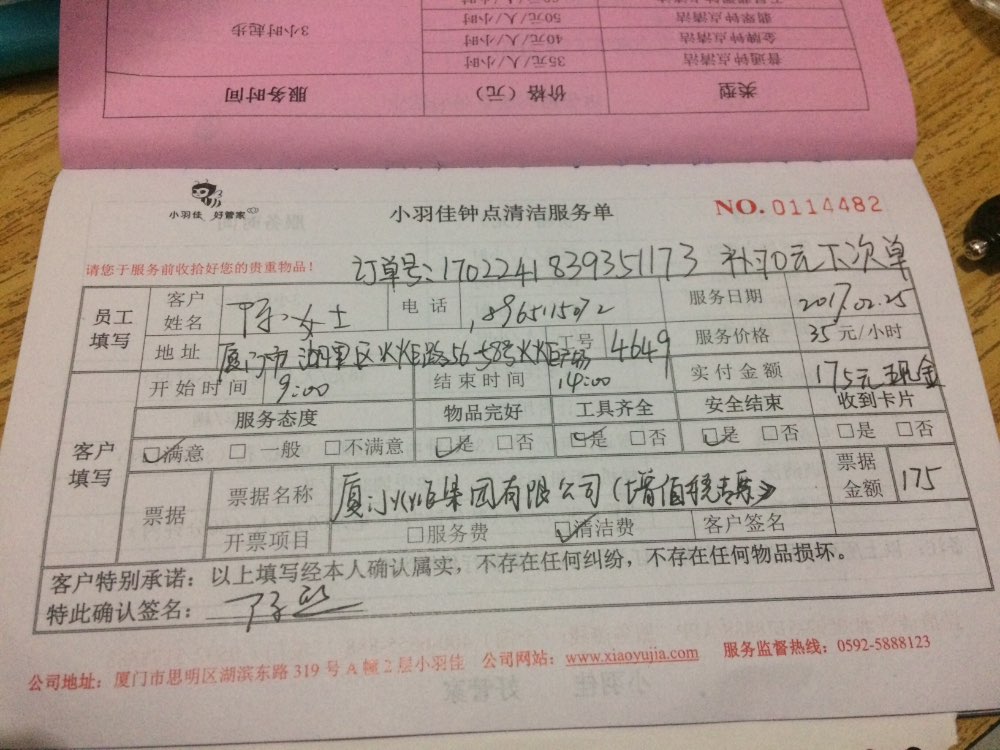 3小时起步
50元/人/小时
翡翠钟点清洁
40元/人/小时
金牌钟点清洁
35元/人/小时
普通钟点清洁
服务时间
价格（元）
类型
小羽佳 好管家
小羽佳钟点清洁服务单
NO. 0114482
请您于服务前收拾好您的贵重物品！
订单号:1702241839351173 补10元下次单
员工填写
客户姓名
陈女士
电 话
服务日期
2017.02.25
地 址
厦门市湖里区火炬路56-58号火炬广场
工号
4649
服务价格
35 元/小时
客户填写
开始时间
9:00
结束时间
14:00
实付金额
175元现金
服务态度
物品完好
工具齐全
安全结束
收到卡片
☑满意 □ 一般 □不满意
☑是 □否
☑是 □否
☑是 □否
□是 □否
票据
票据名称
厦门火炬集团有限公司(增值税专票)
票据金额
175
开票项目
□服务费 ☑清洁费
客户签名
客户特别承诺：以上填写经本人确认属实，不存在任何纠纷，不存在任何物品损坏。
特此确认签名：
公司地址：厦门市思明区湖滨东路 319 号 A 幢 2 层小羽佳 公司网站：www.xiaoyujia.com 服务监督热线：0592-5888123